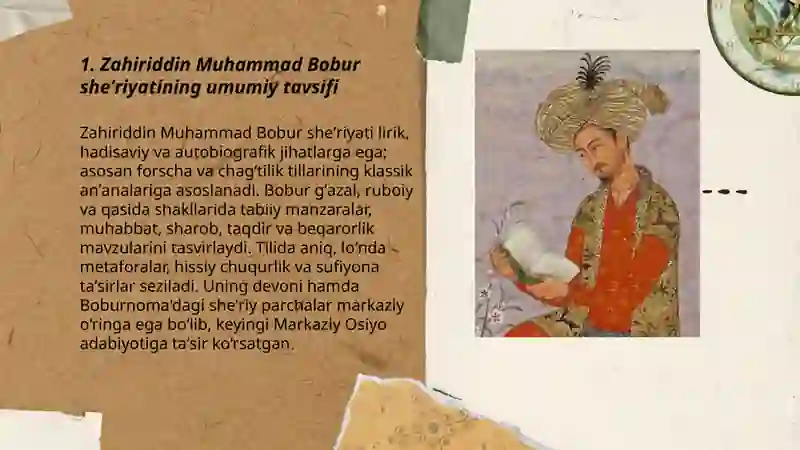 1. Zahiriddin Muhammad Bobur
she’riyatining umumiy tavsifi
Zahiriddin Muhammad Bobur she’riyati lirik,
hadisaviy va autobiografik jihatlarga ega;
asosan forscha va chag‘tilik tillarining klassik
an’analariga asoslanadi. Bobur g‘azal, ruboiy
va qasida shakllarida tabiiy manzaralar,
muhabbat, sharob, taqdir va beqarorlik
mavzularini tasvirlaydi. Tilida aniq, lo‘nda
metaforalar, hissiy chuqurlik va sufiyona
ta’sirlar seziladi. Uning devoni hamda
Boburnoma'dagi she'riy parchalar markaziy
o'ringa ega bo‘lib, keyingi Markaziy Osiyo
adabiyotiga ta’sir ko‘rsatgan.